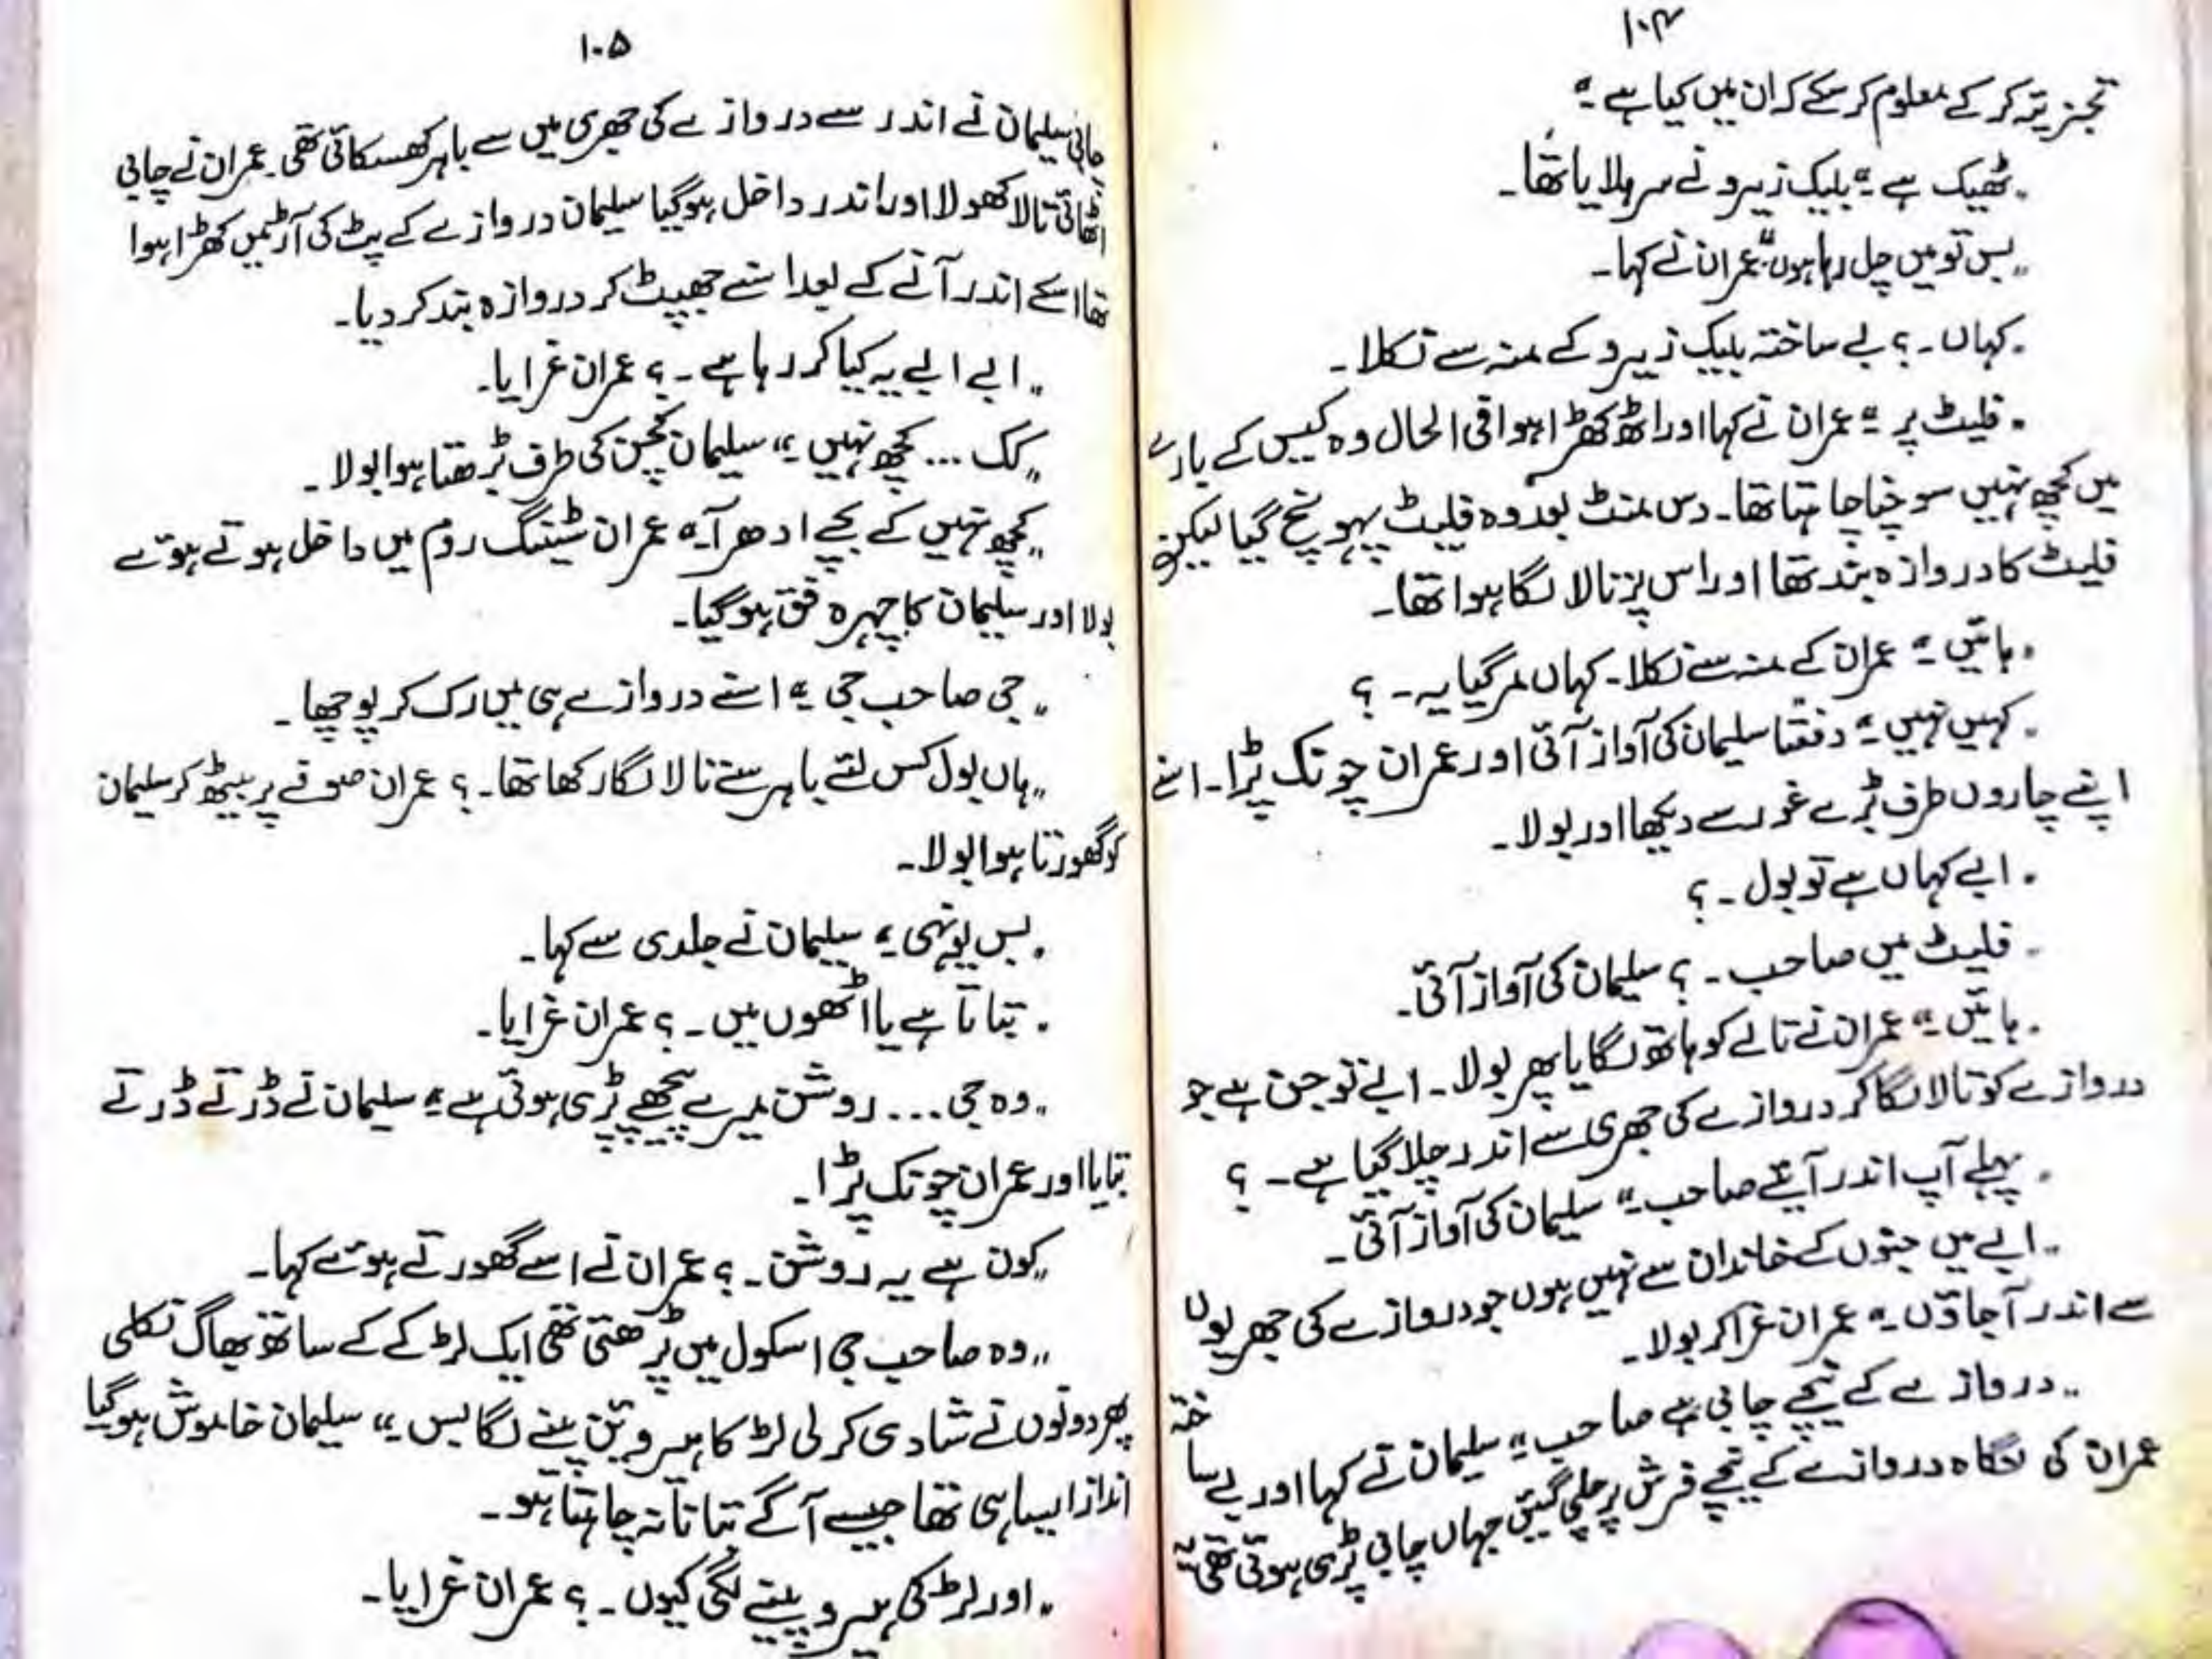 ۱۰۴
تجزیہ کر کے معلوم کر سکے کہ ان میں کیا ہے۔"
"ٹھیک ہے۔" بلیک زیرو نے سر ہلایا تھا۔
"بس تو میں چل رہا ہوں" عمران نے کہا۔
"کہاں۔؟ بے ساختہ بلیک زیرو کے منہ سے نکلا۔
"فلیٹ پر۔" عمران نے کہا اور اٹھ کھڑا ہوا فی الحال وہ کیس کے بارے
میں کچھ نہیں سوچنا چاہتا تھا۔ دس منٹ بعد وہ فلیٹ پہونچ گیا لیکن
فلیٹ کا دروازہ بند تھا اور اس پر تالا لگا ہوا تھا۔
"ہائیں۔" عمران کے منہ سے نکلا۔ کہاں مر گیا یہ۔؟
"کہیں نہیں۔" دفعتاً سلیمان کی آواز آئی اور عمران چونک پڑا۔ اسنے
اپنے چاروں طرف بڑے غور سے دیکھا اور بولا۔
"ابے کہاں ہے تو بول۔؟
"فلیٹ میں صاحب۔؟ سلیمان کی آواز آئی۔
"ہائیں۔" عمران نے تالے کو ہاتھ لگایا پھر بولا۔ ابے تو جن ہے جو
دروازے کو تالا لگا کر دروازے کی جھری سے اندر چلا گیا ہے۔؟
"پہلے آپ اندر آیئے صاحب۔" سلیمان کی آواز آئی۔
"ابے میں جنوں کے خاندان سے نہیں ہوں جو دروازے کی جھریوں
سے اندر آجاؤں۔" عمران غرا کر بولا۔
"دروازے کے نیچے چابی ہے صاحب۔" سلیمان نے کہا اور بے ساختہ
عمران کی نگاہ دروازے کے نیچے فرش پر چلی گئیں جہاں چابی پڑی ہوئی تھی یہ
۱۰۵
چابی سلیمان نے اندر سے دروازے کی جھری میں سے باہر کھسکائی تھی۔ عمران نے چابی
اٹھائی تالا کھولا اور اندر داخل ہو گیا سلیمان دروازے کے پٹ کی آڑ میں کھڑا ہوا
تھا اسکے اندر آنے کے بعد اسنے جھپٹ کر دروازہ بند کر دیا۔
"ابے ابے یہ کیا کر رہا ہے۔؟ عمران غرایا۔
"کک... کچھ نہیں۔" سلیمان کچن کی طرف بڑھتا ہوا بولا۔
"کچھ نہیں کے بچے ادھر آ۔" عمران سٹینگ روم میں داخل ہوتے ہوئے
بولا اور سلیمان کا چہرہ فق ہو گیا۔
"جی صاحب جی۔" اسنے دروازے ہی میں رک کر پوچھا۔
"ہاں بول کس لئے باہر سے تالا لگا رکھا تھا۔؟ عمران صوفے پر بیٹھ کر سلیمان
کو گھورتا ہوا بولا۔
"بس یونہی۔" سلیمان نے جلدی سے کہا۔
"بتاتا ہے یا اٹھوں میں۔؟ عمران غرایا۔
"وہ جی... روشن میرے پیچھے پڑی ہوئی ہے۔" سلیمان نے ڈرتے ڈرتے
بتایا اور عمران چونک پڑا۔
"کون ہے یہ روشن۔؟ عمران نے اسے گھورتے ہوئے کہا۔
"وہ صاحب جی اسکول میں پڑھتی تھی ایک لڑکے کے ساتھ بھاگ نکلی
پھر دونوں نے شادی کر لی لڑکا ہیروئن پینے لگا بس۔" سلیمان خاموش ہو گیا
انداز ایسا ہی تھا جیسے آگے بتانا نہ چاہتا ہو۔
"اور لڑکی ہیرو پینے لگی کیوں۔؟ عمران غرایا۔